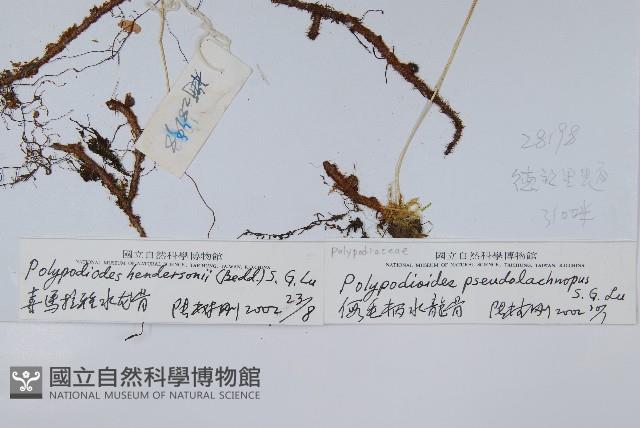 28198
310咪
國立自然科學博物館
NATIONAL MUSEUM OF NATURAL SCIENCE, TAICHUNG, TAIWAN, R.O.CHINA
Polypodiodes hendersonii (Bedd.) S. G. Lu
喜馬拉雅水龙骨 陆树刚 2002 23/8
polypodiaceae
國立自然科學博物館
NATIONAL MUSEUM OF NATURAL SCIENCE, TAICHUNG, TAIWAN, R.O.CHINA
Polypodioides pseudolachnopus
S. G. Lu
假毛柄水龍骨 陆树刚 2002
國立自然科學博物館
NATIONAL MUSEUM OF NATURAL SCIENCE